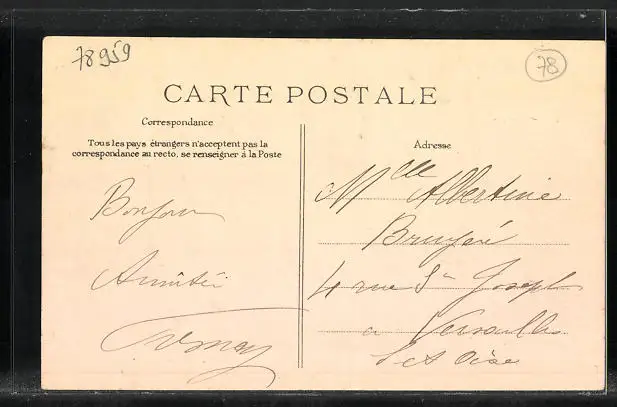 78959
78
CARTE POSTALE
Correspondance
Tous les pays étrangers n'acceptent pas la
correspondance au recto, se renseigner à la Poste
Bonjour
Amitié
Adresse
Mlle Albertine
Bruyère
4 rue St Joseph
a Versailles
S et Oise